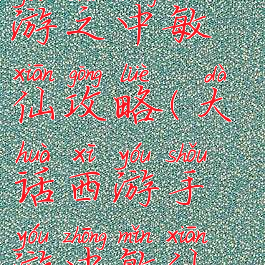 游之中敏
xiān gōng lüè dà
仙攻略(大
huà xī yóu shǒu
话西游手
yóu zhōng mǐn xiān